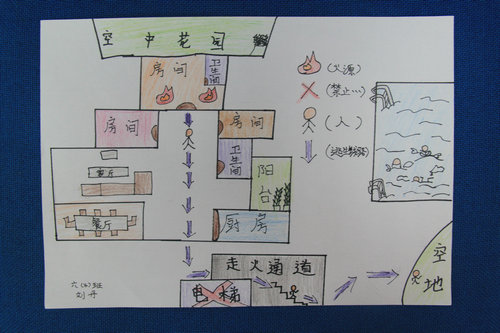 空中花园
房间
卫生间
(火源)
(禁止…)
房间
房间
(人)
卫生间
客厅
阳台
餐厅
厨房
走火通道
空地
电梯
六(6)班
刘丹